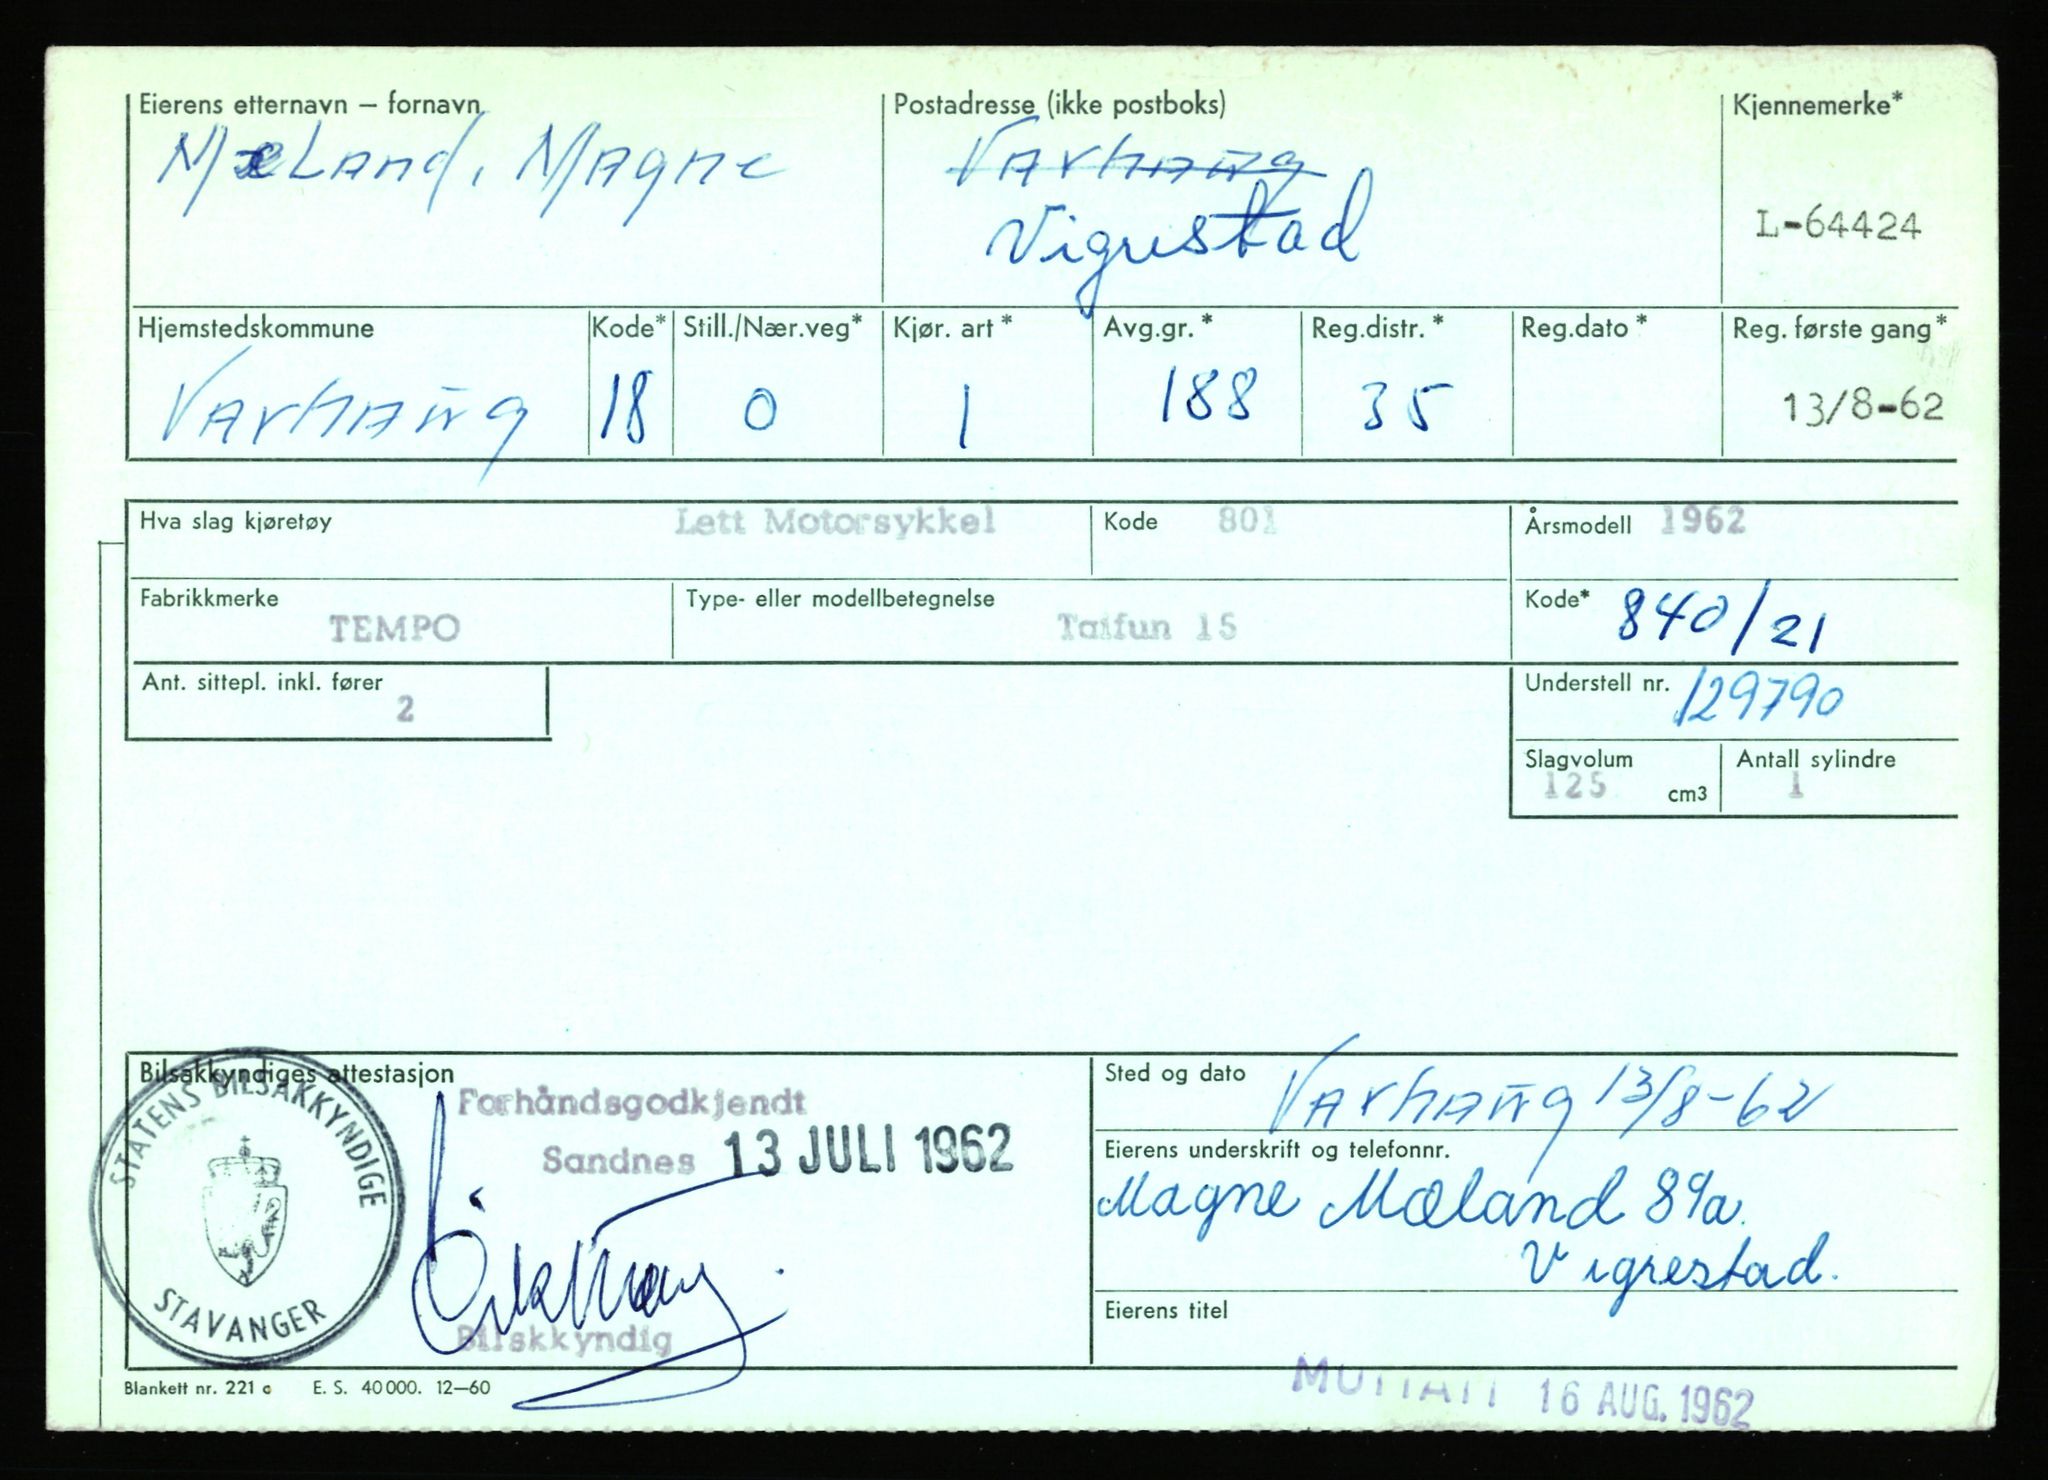 Eierens etternavn – fornavn
Mæland, Magne
Postadresse (ikke postboks)
Varhaug
Vigrestad
Kjennemerke*
L-64424
Hjemstedskommune
Varhaug
Kode*
18
Still./Nær.veg*
0
Kjør. art *
1
Avg.gr. *
188
Reg.distr. *
35
Reg.dato *
Reg. første gang*
13/8-62
Hva slag kjøretøy Lett Motorsykkel
Kode 801
Årsmodell 1962
Fabrikkmerke
TEMPO
Type- eller modellbetegnelse
Taifun 15
Kode* 840/21
Ant. sittepl. inkl. fører
2
Understell nr. 129790
Slagvolum
125 cm3
Antall sylindre
1
Bilsakkyndiges attestasjon
Forhåndsgodkjendt
Sandnes 13 JULI 1962
Bilskkyndig
STATENS BILSAKKYNDIGE
STAVANGER
Sted og dato Varhaug 13/8-62
Eierens underskrift og telefonnr.
Magne Mæland 89a.
Vigrestad.
Eierens titel
Blankett nr. 221 c E. S. 40 000. 12–60
MOTTATT 16 AUG. 1962